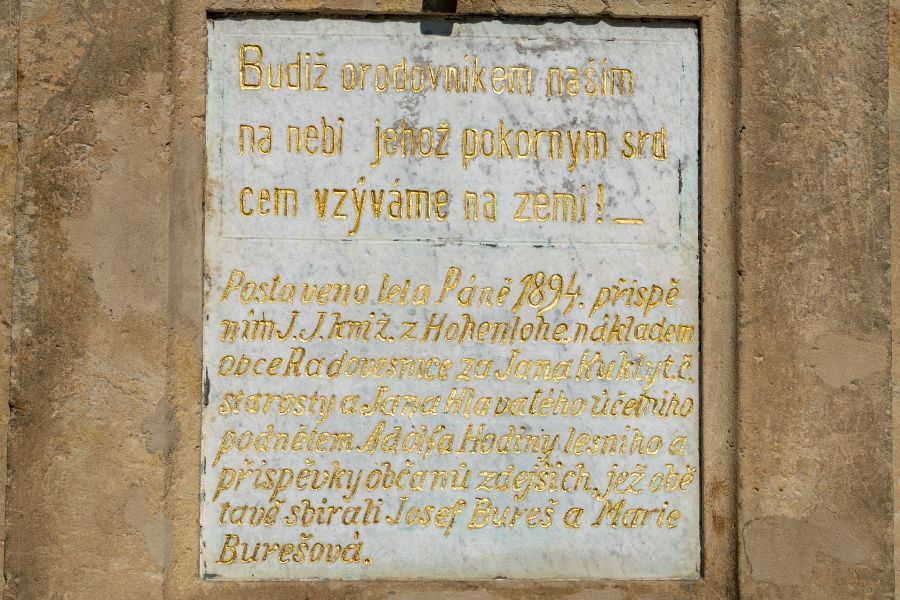 Budiž orodovníkem naším
na nebi jehož pokorným srd
cem vzýváme na zemi!_
Postaveno leta Páně 1894. příspě
ním J.J.kníž. z Hohenlohe, nákladem
obce Radovesnice za Jana Kuklyt.č.
starosty a Jana Hlavatého účetního
podnětem Adolfa Hodiny lesního a
příspěvky občanů zdejších, jež obě
tavě sbírali Josef Bureš a Marie
Burešová.